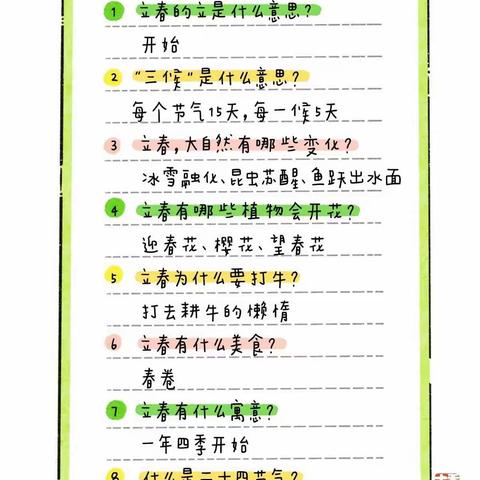 1 立春的立是什么意思?
开始
2 "三候"是什么意思?
每个节气15天,每一候5天
3 立春,大自然有哪些变化?
冰雪融化、昆虫苏醒、鱼跃出水面
4 立春有哪些植物会开花?
迎春花、樱花、望春花
5 立春为什么要打牛?
打去耕牛的懒惰
6 立春有什么美食?
春卷
7 立春有什么寓意?
一年四季开始
8 什么是二十四节气?